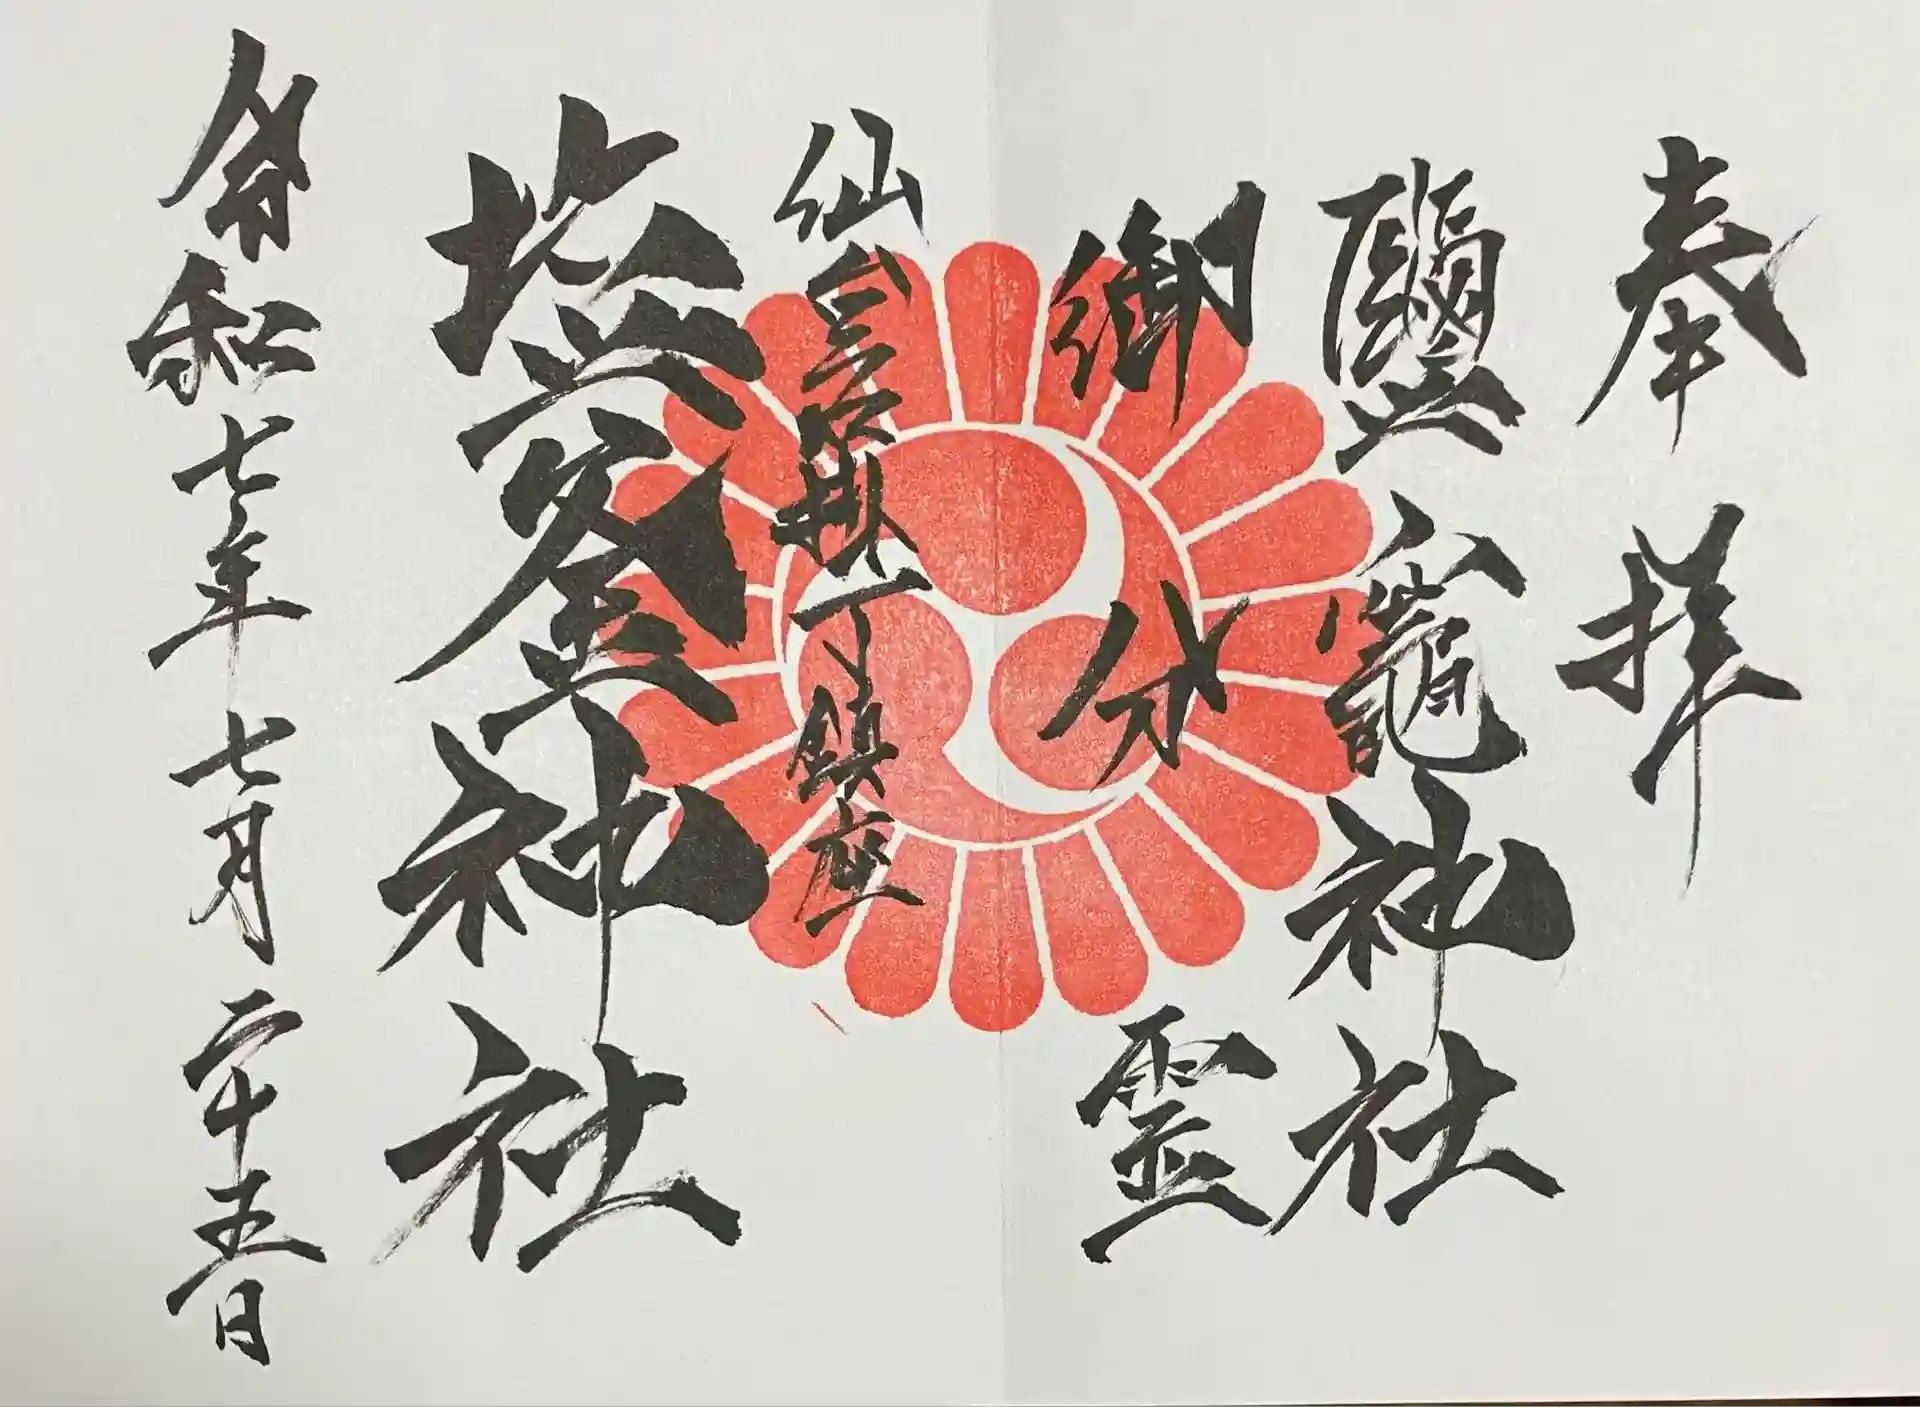 奉拝
鹽竈神社
御分霊
仙台掛丁鎮座
塩釜神社
令和七年七月二十五日